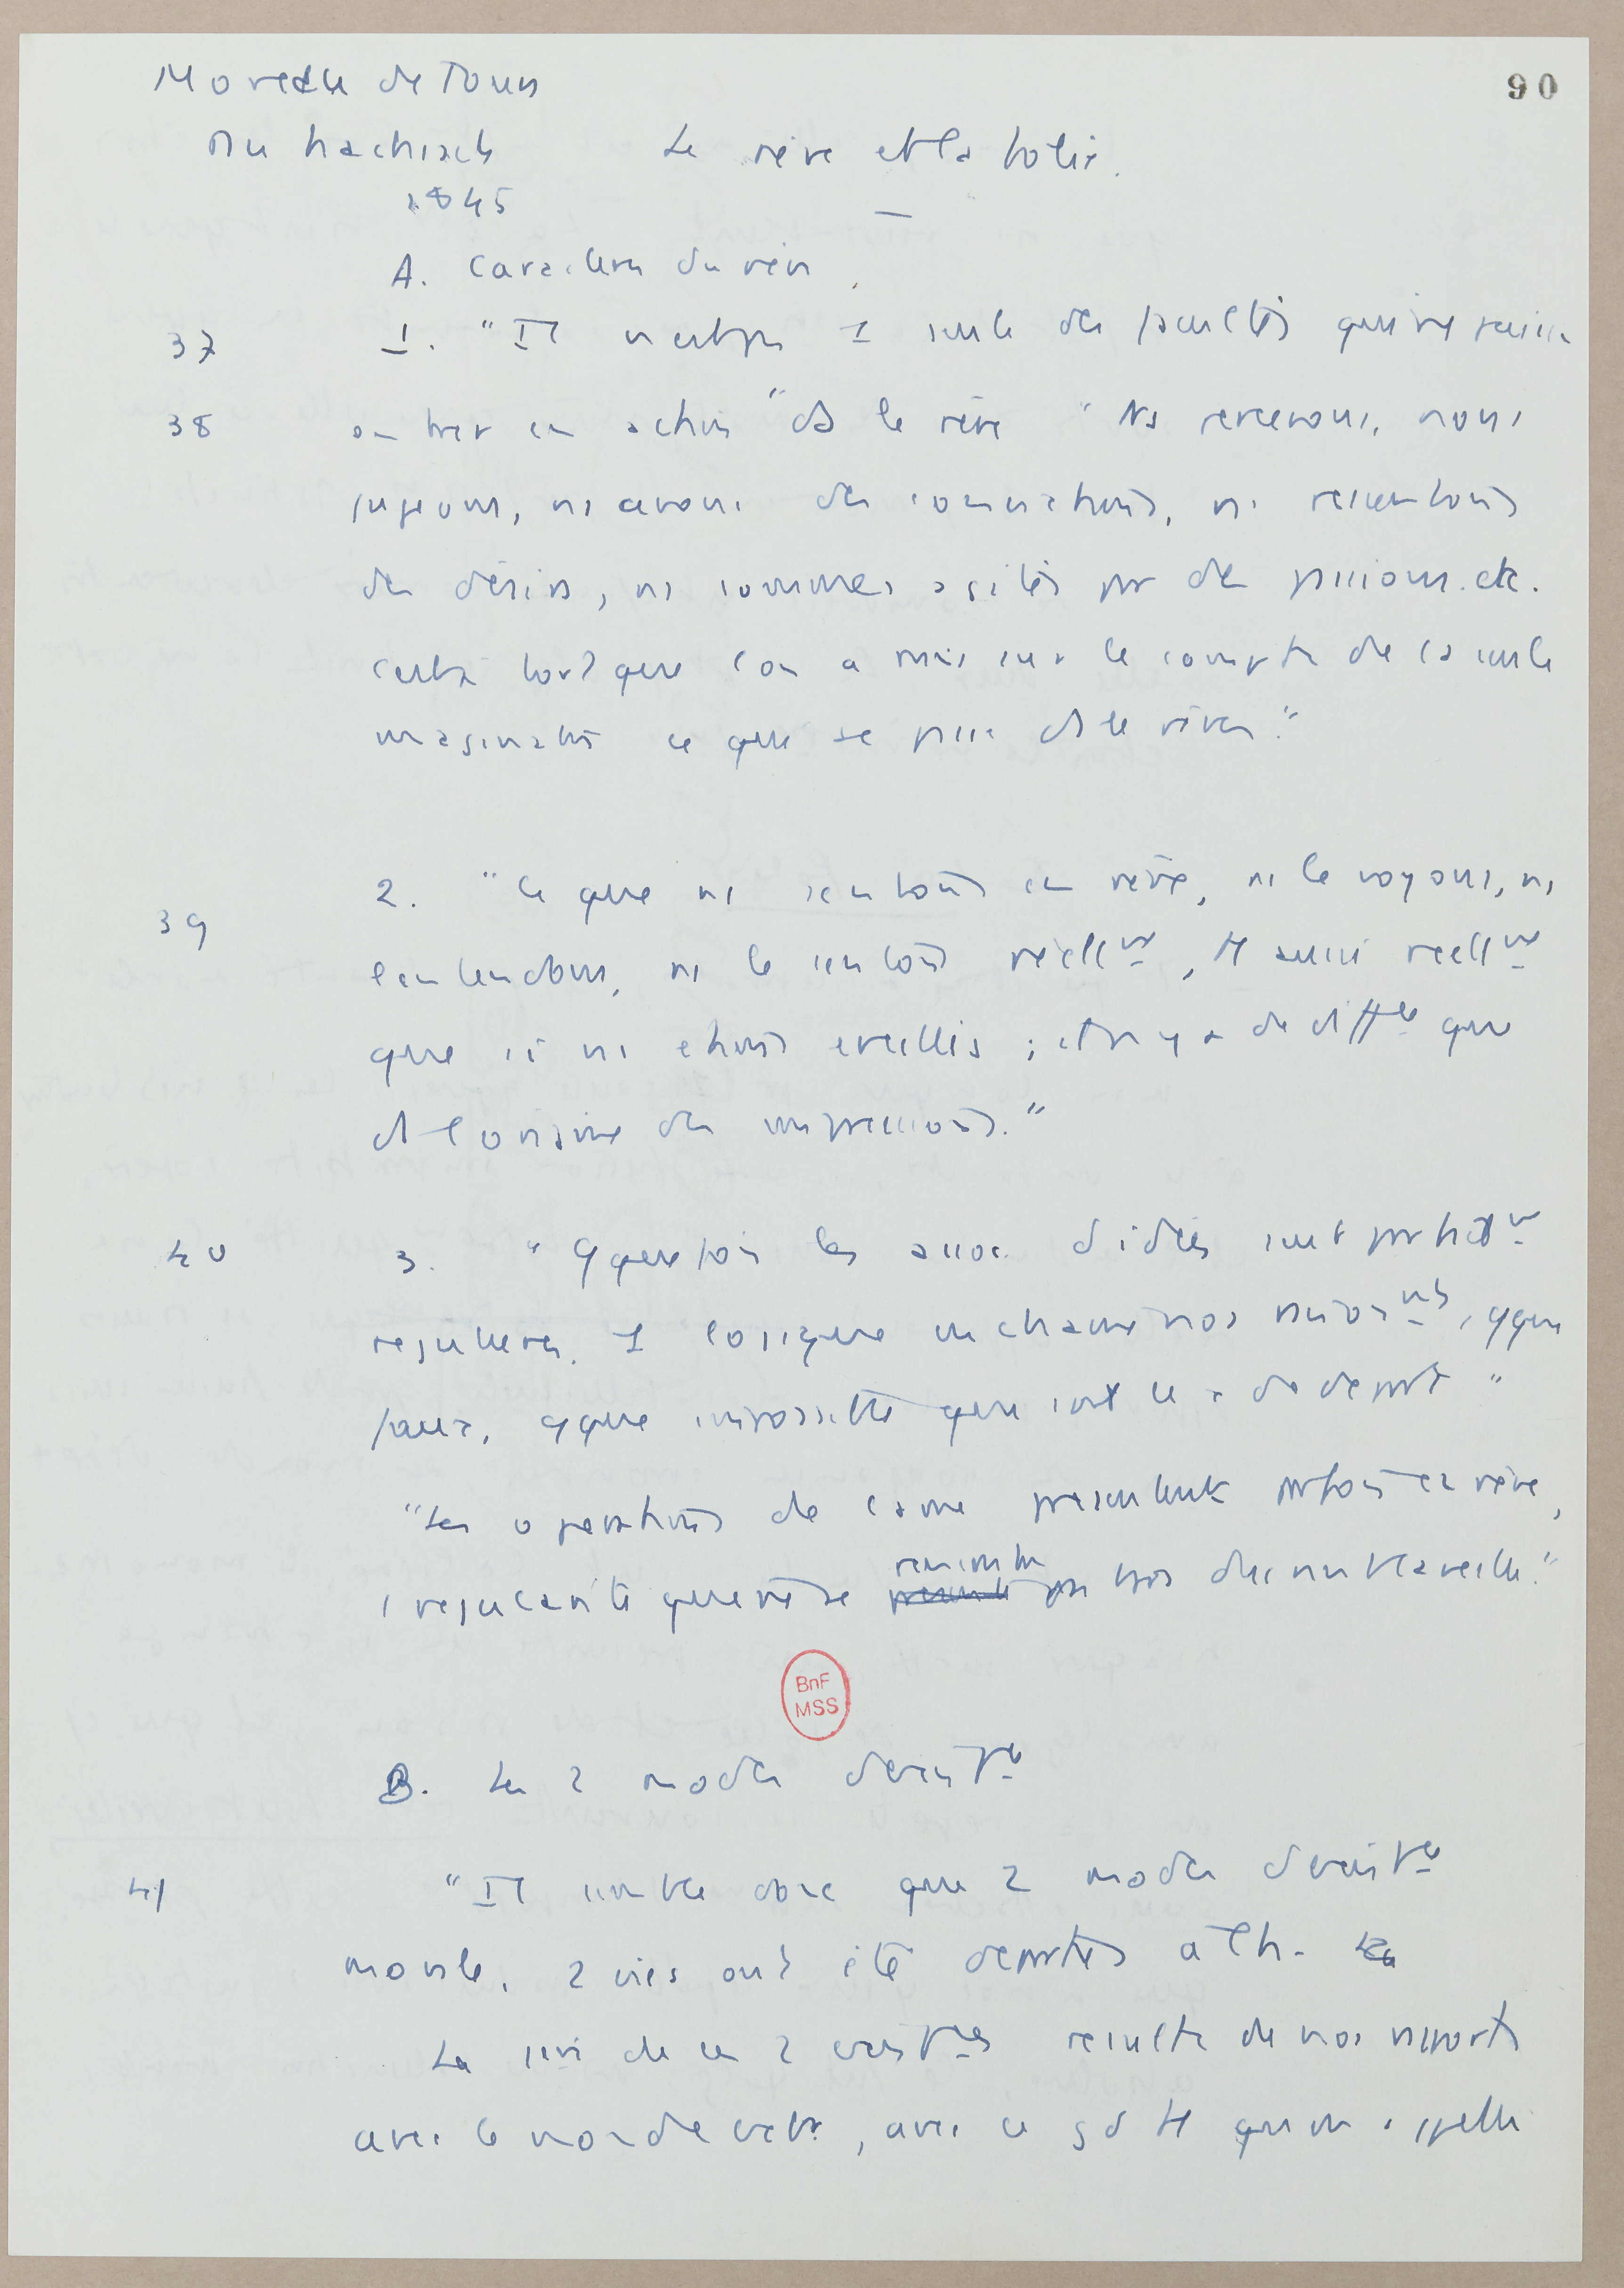 Moreau de Tours
90
Du hachisch Le rêve et la folie.
1845
A. Caractères du rêve
37 1. "Il n'est pas 1 seule des facultés qui ne puisse
38 entrer en action" ds le rêve "Ns percevons, nous
jugeons, ns avons des convictions, ns ressentons
des désirs, ns sommes agités par des passions. etc.
c'est à tort que l'on a mis sur le compte de la seule
imagination ce que se passe ds le rêves."
39 2. "Ce que ns sentons en rêve, ns le voyons, ns
l'entendons, ns le sentons réellnt, tt aussi réellnt
que si ns étions éveillés ; et n'y a de diffce que
ds l'origine des impressions."
40 3. "Qquefois les assoc. d'idées sont parfaitnt
régulières. 1 logique enchaîne nos raisonnts, qque
faux, qque impossible que soit le pt de départ"
"Les opérations de l'âme présentent parfois en rêve,
1 régularité qui ne se rencontre pas tjrs durant la veille."
BnF
MSS
B. Les 2 modes d'existce
41 "Il semble donc que 2 modes d'existce
morale, 2 vies ont été départies à l'h.
La 1ère de ces 2 existces résulte de nos rapports
avec le monde extr, avec ce gd tt qu'on appelle